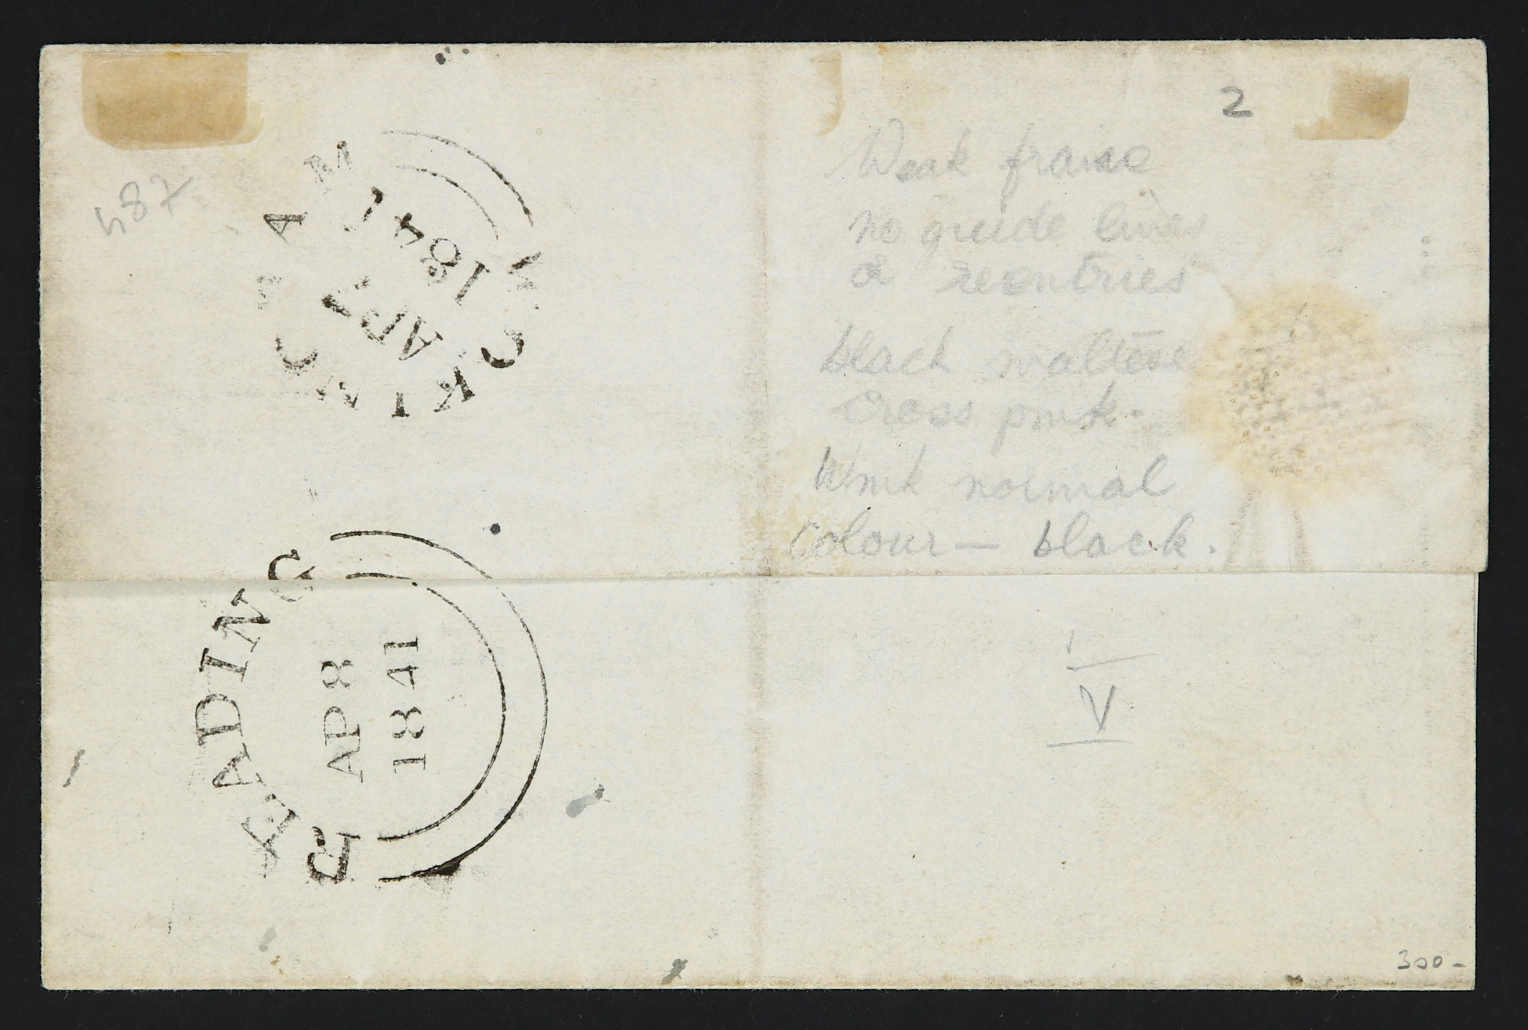 2
487
WOKINGHAM
AP 7
1841
Weak frame
no guide lines
or reentries
black maltese
cross pmk.
Wmk normal
colour — black.
READING
AP 8
1841
V
300 -